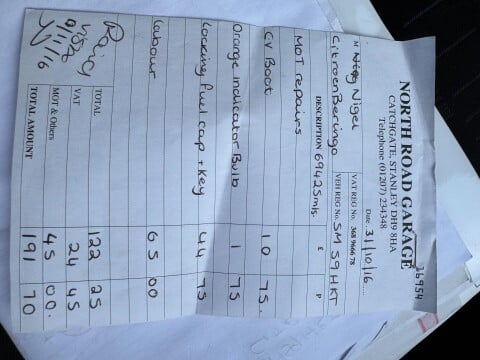 36954
NORTH ROAD GARAGE
CATCHGATE, STANLEY DH9 8HA
Telephone (01207) 234348
Date 31/10/16
M Nigel
VAT REG No. 368 9666 78
Citroen Beringo
VEH REG No. SM 59 HKT
DESCRIPTION 69425mls. £ P
MOT repairs
CV Boot 10 75.
Orange indicator Bulb 1 75
Locking fuel cap + Key 44 75
Labour 65 00
TOTAL 122 25
VAT 24 45
MOT & Others 45 00.
TOTAL AMOUNT 191 70
Paid by
visa